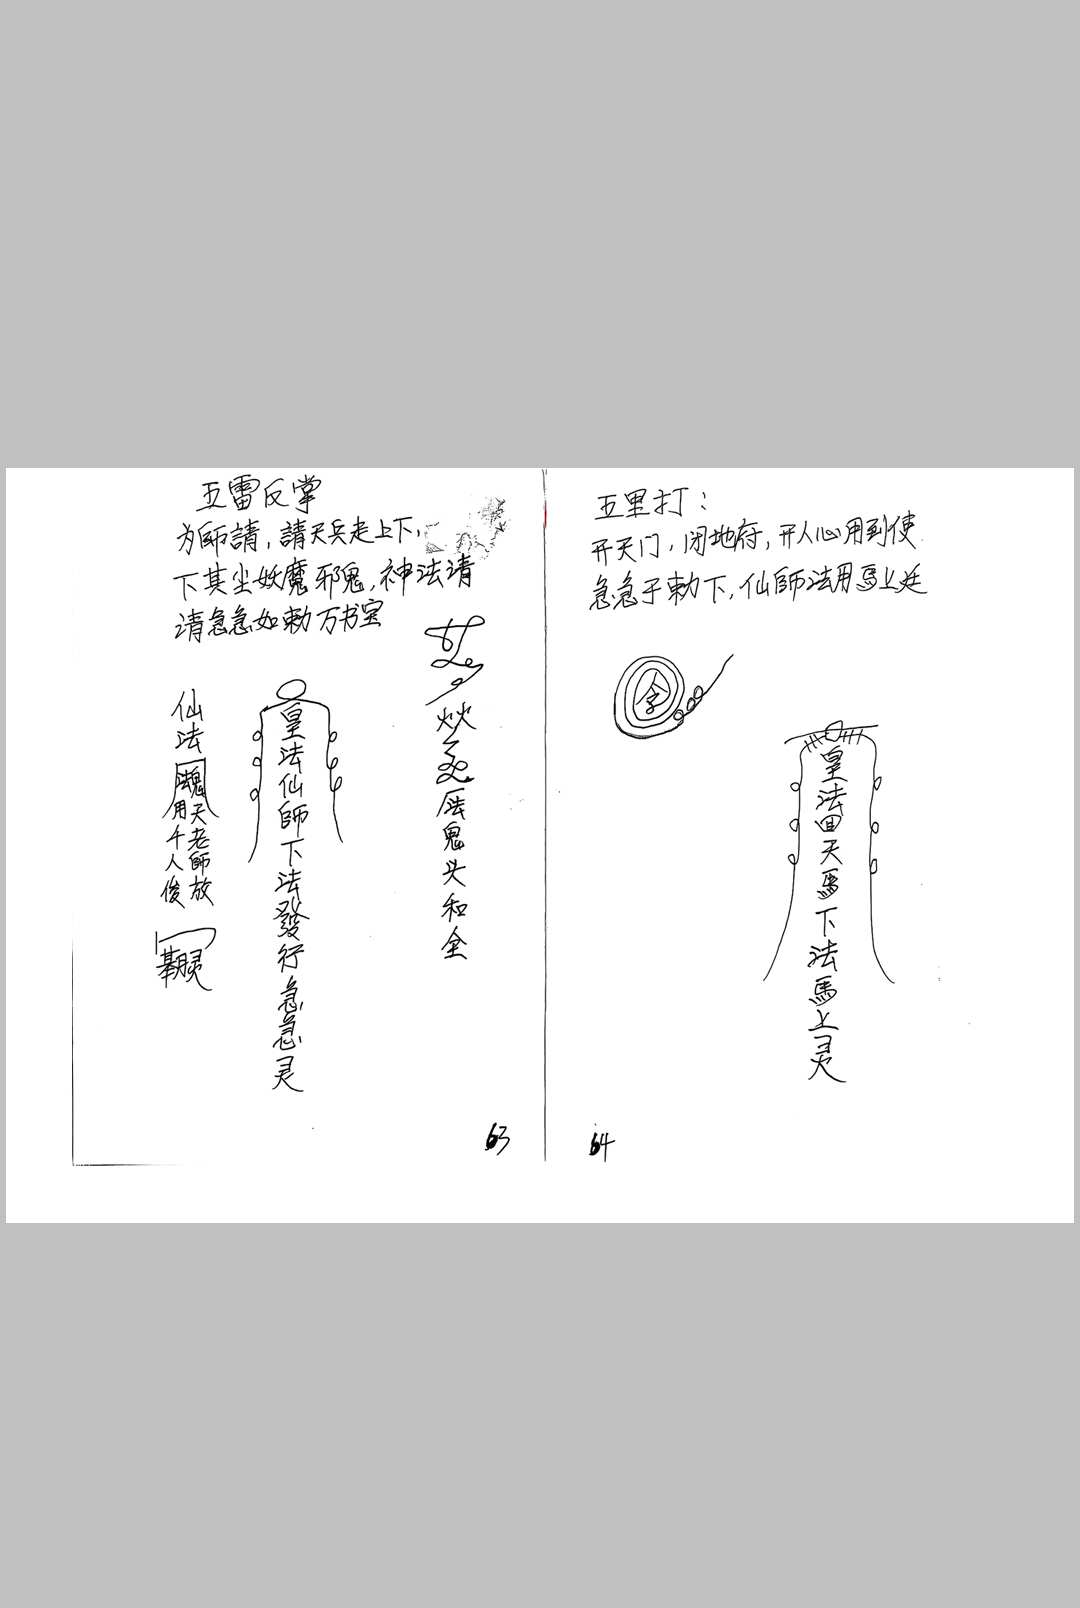 五雷反掌
为師請，請天兵走上下，
下其尘妖魔邪鬼，神法清
清急急如勅万书室
仙法
天老師放
用千人俊
皇法仙師下法發行急急灵
鬼头和全
63
五里打：
开天门，闭地府，开人心用到使
急急于勅下，仙師法用馬上廷
皇法
天馬下法馬上灵
64